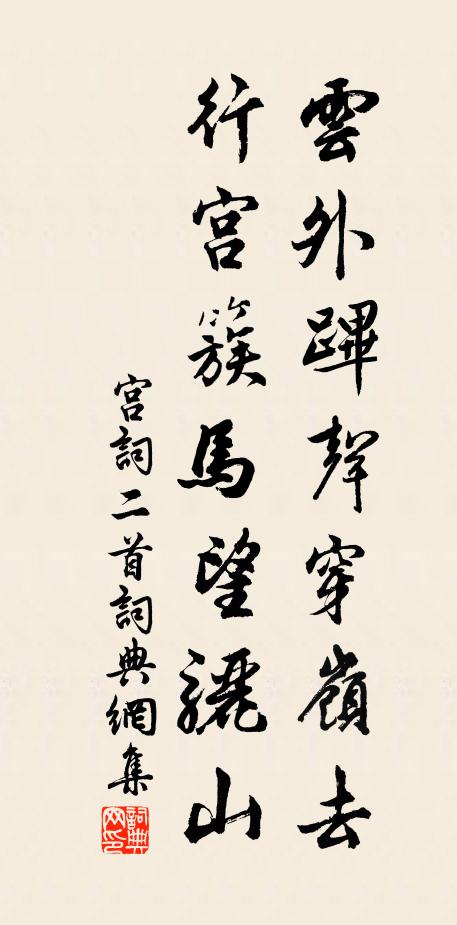 雲外蹕聲穿嶺去
行宮簇馬望驪山
宮詞二首詞典網集
詞典網印